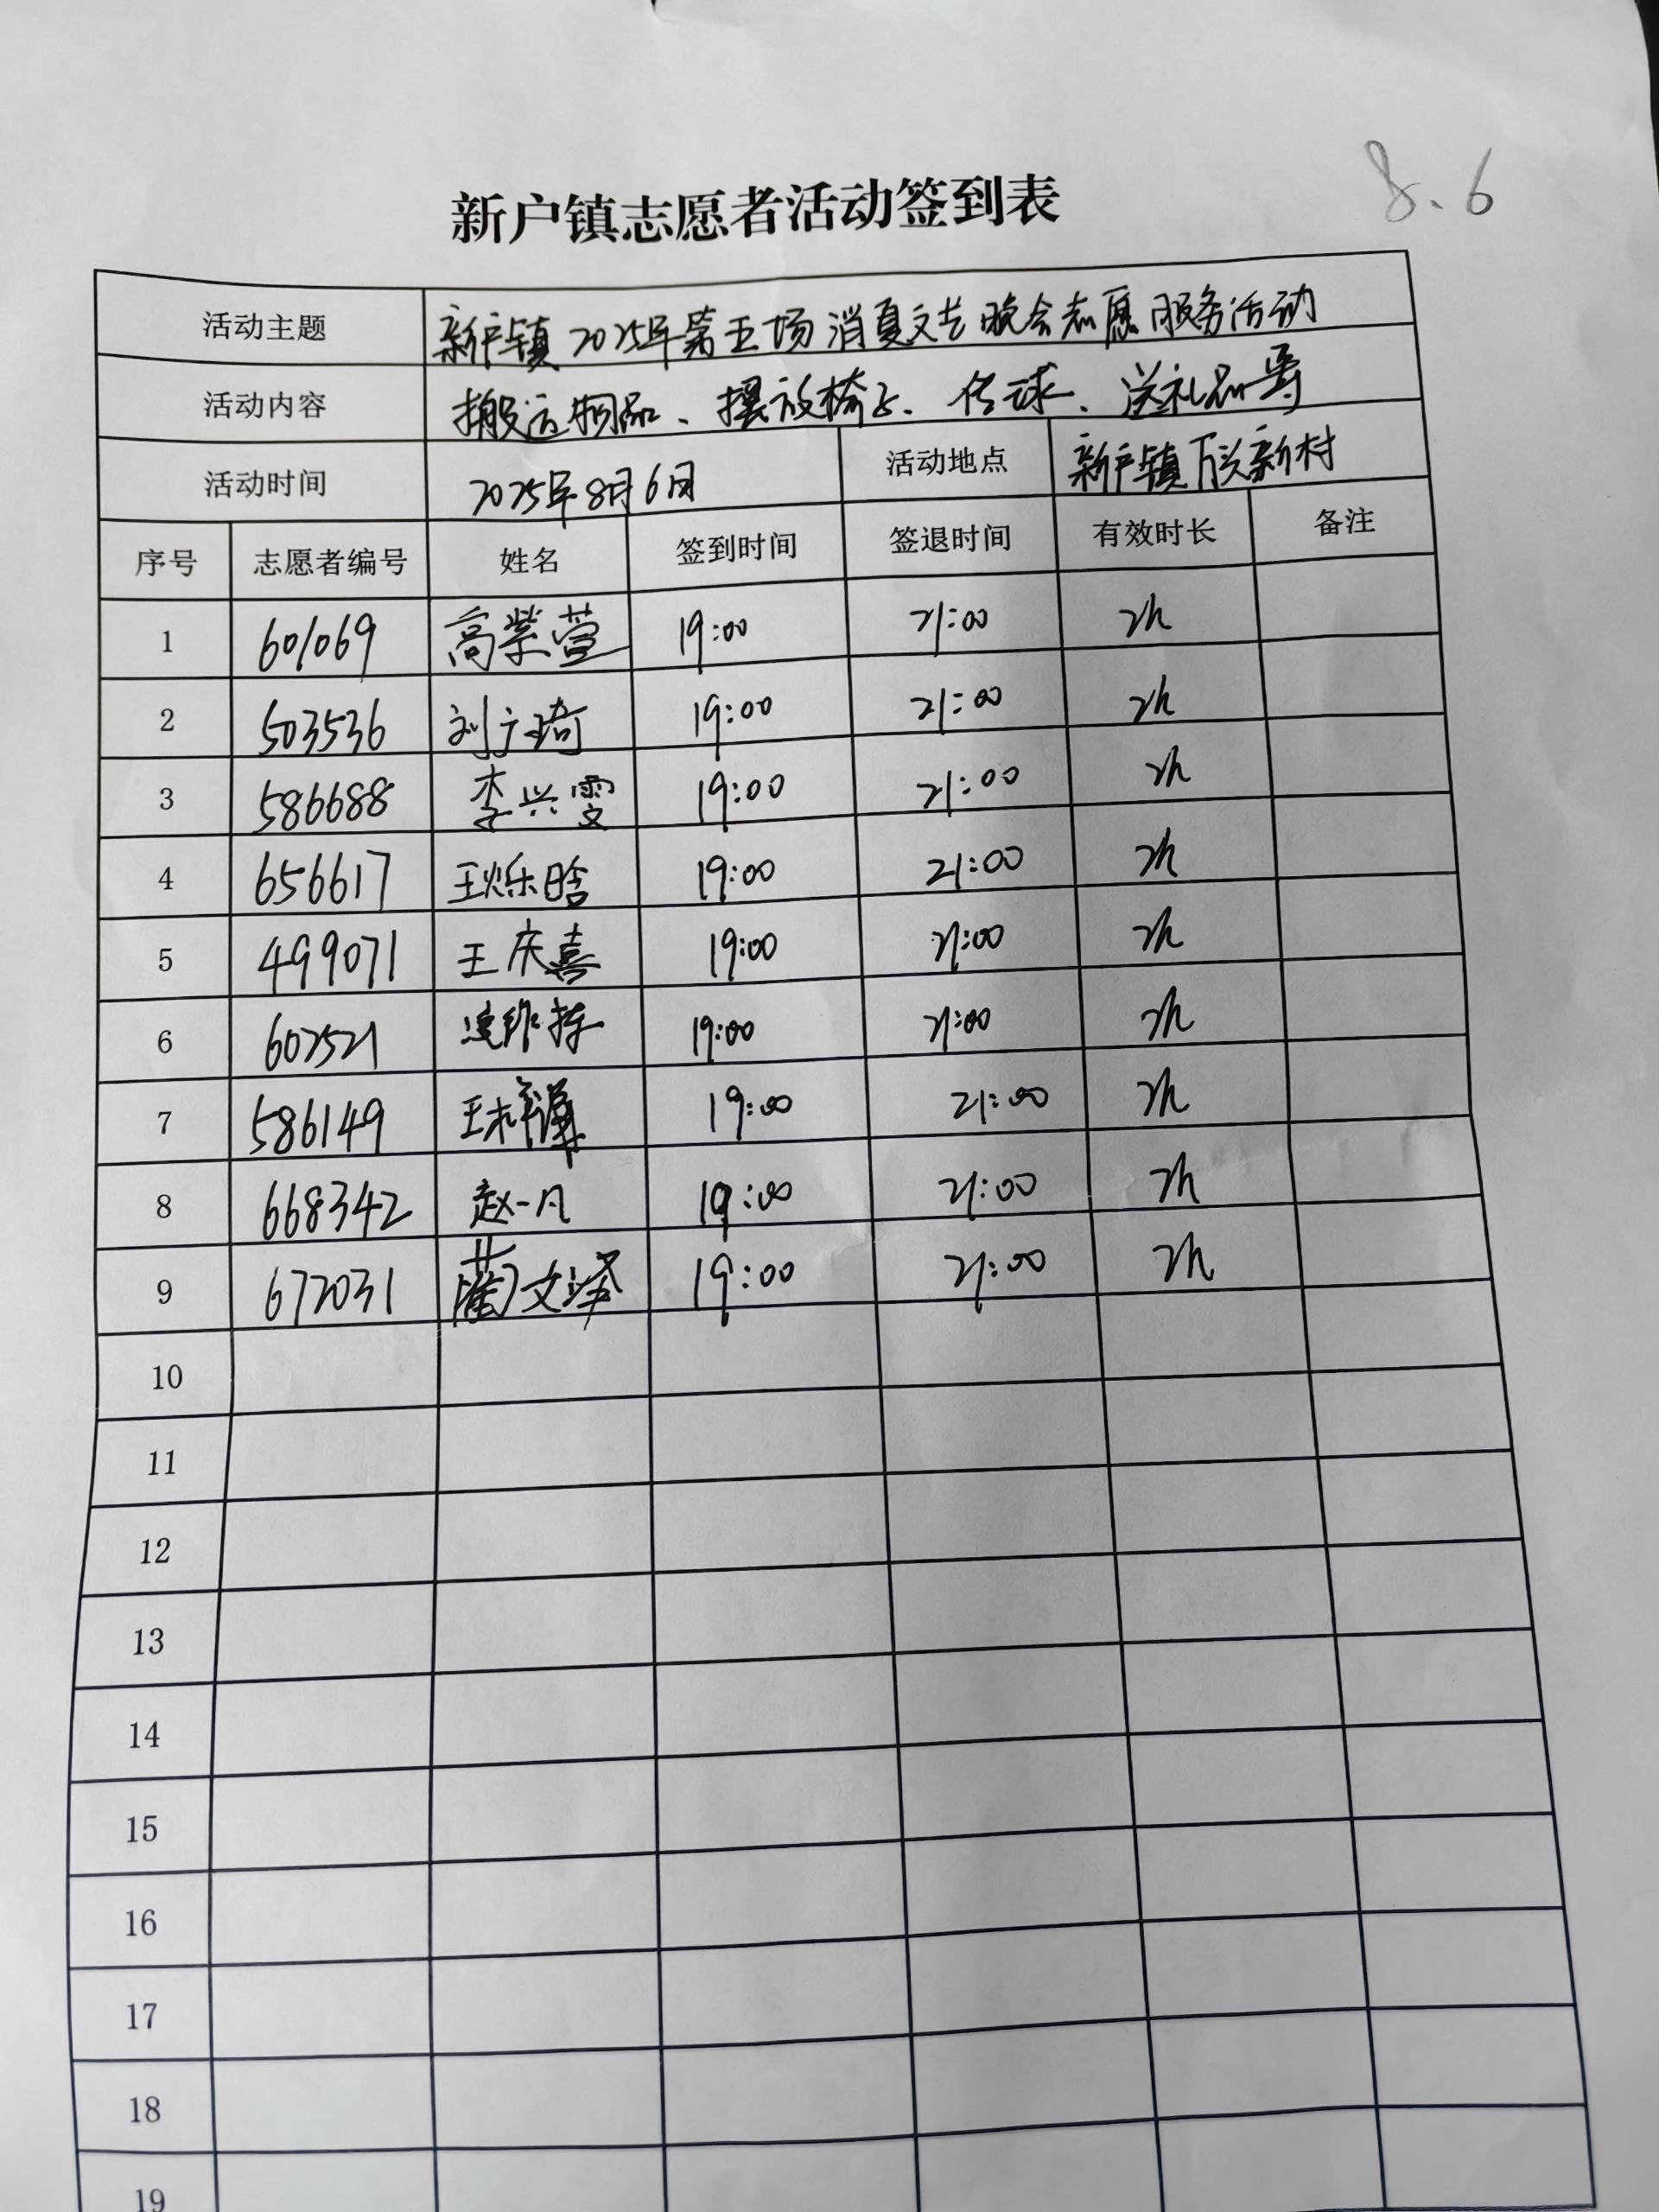 8.6
新户镇志愿者活动签到表
活动主题 新户镇2025年第五场消夏文艺晚会志愿服务活动
活动内容 搬运物品、摆放椅子、传球、送礼品等
活动时间 2025年8月6日 活动地点 新户镇万头新村
序号 志愿者编号 姓名 签到时间 签退时间 有效时长 备注
1 601069 高紫萱 19:00 21:00 2h
2 503536 刘广琦 19:00 21:00 2h
3 586688 李兴雯 19:00 21:00 2h
4 656617 王烁晗 19:00 21:00 2h
5 499071 王庆喜 19:00 21:00 2h
6 602521 19:00 21:00 2h
7 586149 19:00 21:00 2h
8 668342 赵一凡 19:00 21:00 2h
9 672031 蔺文泽 19:00 21:00 2h
10
11
12
13
14
15
16
17
18
19